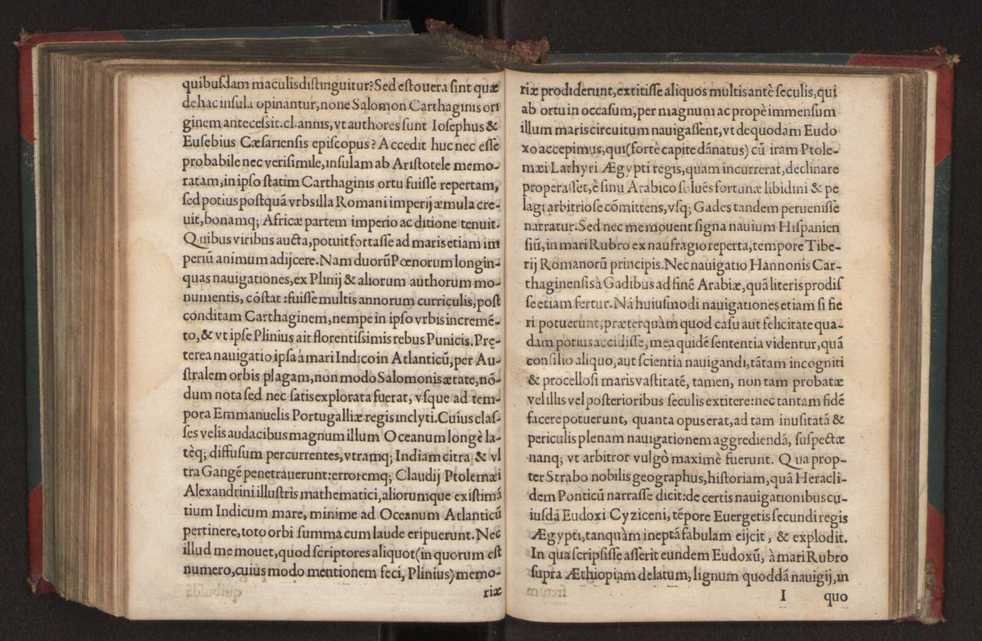 quibusdam maculis distinguitur? Sed esto vera sint quæ
de hac insula opinantur, non e Salomon Carthaginis ori
ginem antecessit.cl. annis, vt authores sunt Iosephus &
Eusebius Cæsariensis episcopus? Accedit huc nec esse
probabile nec verisimile, insulam ab Aristotele memo-
ratam, in ipso statim Carthaginis ortu fuisse repertam,
sed potius postquã vrbs illa Romani imperij æmula cre-
uit, bonamq; Africæ partem imperio ac ditione tenuit.
Quibus viribus aucta, potuit fortasse ad maris etiam im
periũ animum adijcere. Nam duorũ Pœnorum longin-
quas nauigationes, ex Plinij & aliorum authorum mo-
numentis, cõstat: fuisse multis annorum curriculis, post
conditam Carthaginem, nempe in ipso vrbis incremẽ-
to, & vt ipse Plinius ait florentissimis rebus Punicis. Prę-
terea nauigatio ipsa à mari Indico in Atlanticũ, per Au-
stralem orbis plagam, non modo Salomonis ætate, nõ-
dum nota sed nec satis explorata fuerat, vsque ad tem-
pora Emmanuelis Portugalliæ regis inclyti. Cuius clas-
ses velis audacibus magnum illum Oceanum longè la-
tèq; diffusum percurrentes, vtramq; Indiam citra & vl
tra Gangẽ penetrauerunt: erroremq; Claudij Ptolemæi
Alexandrini illustris mathematici, aliorumque existimã
tium Indicum mare, minime ad Oceanum Atlanticũ
pertinere, toto orbi summa cum laude eripuerunt. Nec
illud me mouet, quod scriptores aliquot (in quorum est
numero, cuius modo mentionem feci, Plinius) memo-
riæ
riæ prodiderunt, extitisse aliquos multis antè seculis, qui
ab ortu in occasum, per magnum ac propè immensum
illum maris circuitum nauigassent, vt de quodam Eudo
xo accepimus, qui (fortè capite dãnatus) cũ iram Ptole-
mæi Lathyri Ægypti regis, quam incurrerat, declinare
properasset, è sinu Arabico soluẽs fortunæ libidini & pe
lagi arbitrio se cõmittens, vsq; Gades tandem peruenisse
narratur. Sed nec me mouent signa nauium Hispanien
siũ, in mari Rubro ex naufragio reperta, tempore Tibe-
rij Romanorũ principis. Nec nauigatio Hannonis Car-
thaginensis à Gadibus ad finẽ Arabiæ, quã literis prodis
se etiam fertur. Nã huiusmodi nauigationes etiam si fie
ri potuerunt, præterquàm quod casu aut felicitate qua-
dam potius accidisse, mea quidẽ sententia videntur, quã
consilio aliquo, aut scientia nauigandi, tãtam incogniti
& procellosi maris vastitatẽ, tamen, non tam probatæ
vel illis vel posterioribus seculis extitere: nec tantam fidẽ
facere potuerunt, quanta opus erat, ad tam inusitatã &
periculis plenam nauigationem aggrediendã, suspectæ
nanq; vt arbitror vulgò maximè fuerunt. Qua prop-
ter Strabo nobilis geographus, historiam, quã Heracli-
dem Ponticũ narrasse dicit: de certis nauigationibus cu-
iusdã Eudoxi Cyziceni, tẽpore Euergetis secundi regis
Ægypti, tanquàm ineptã fabulam eijcit, & explodit.
In qua scripsisse asserit eundem Eudoxũ, à mari Rubro
supra Æthiopiam delatum, lignum quoddã nauigij, in
I quo